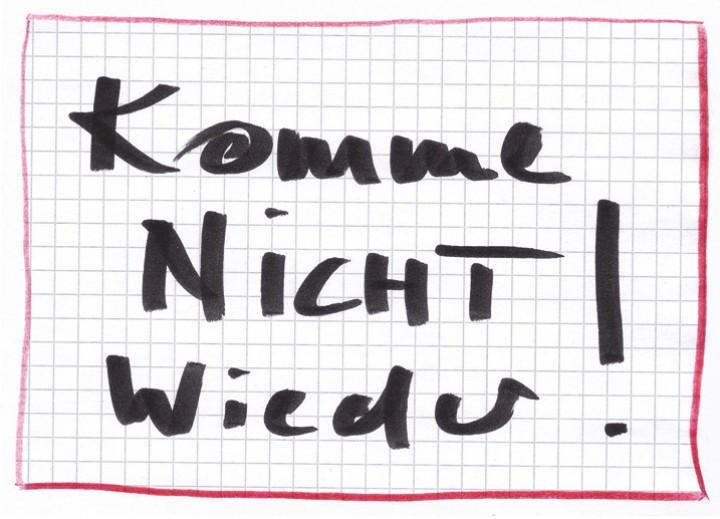 Komme
NiCHT
Wieder!